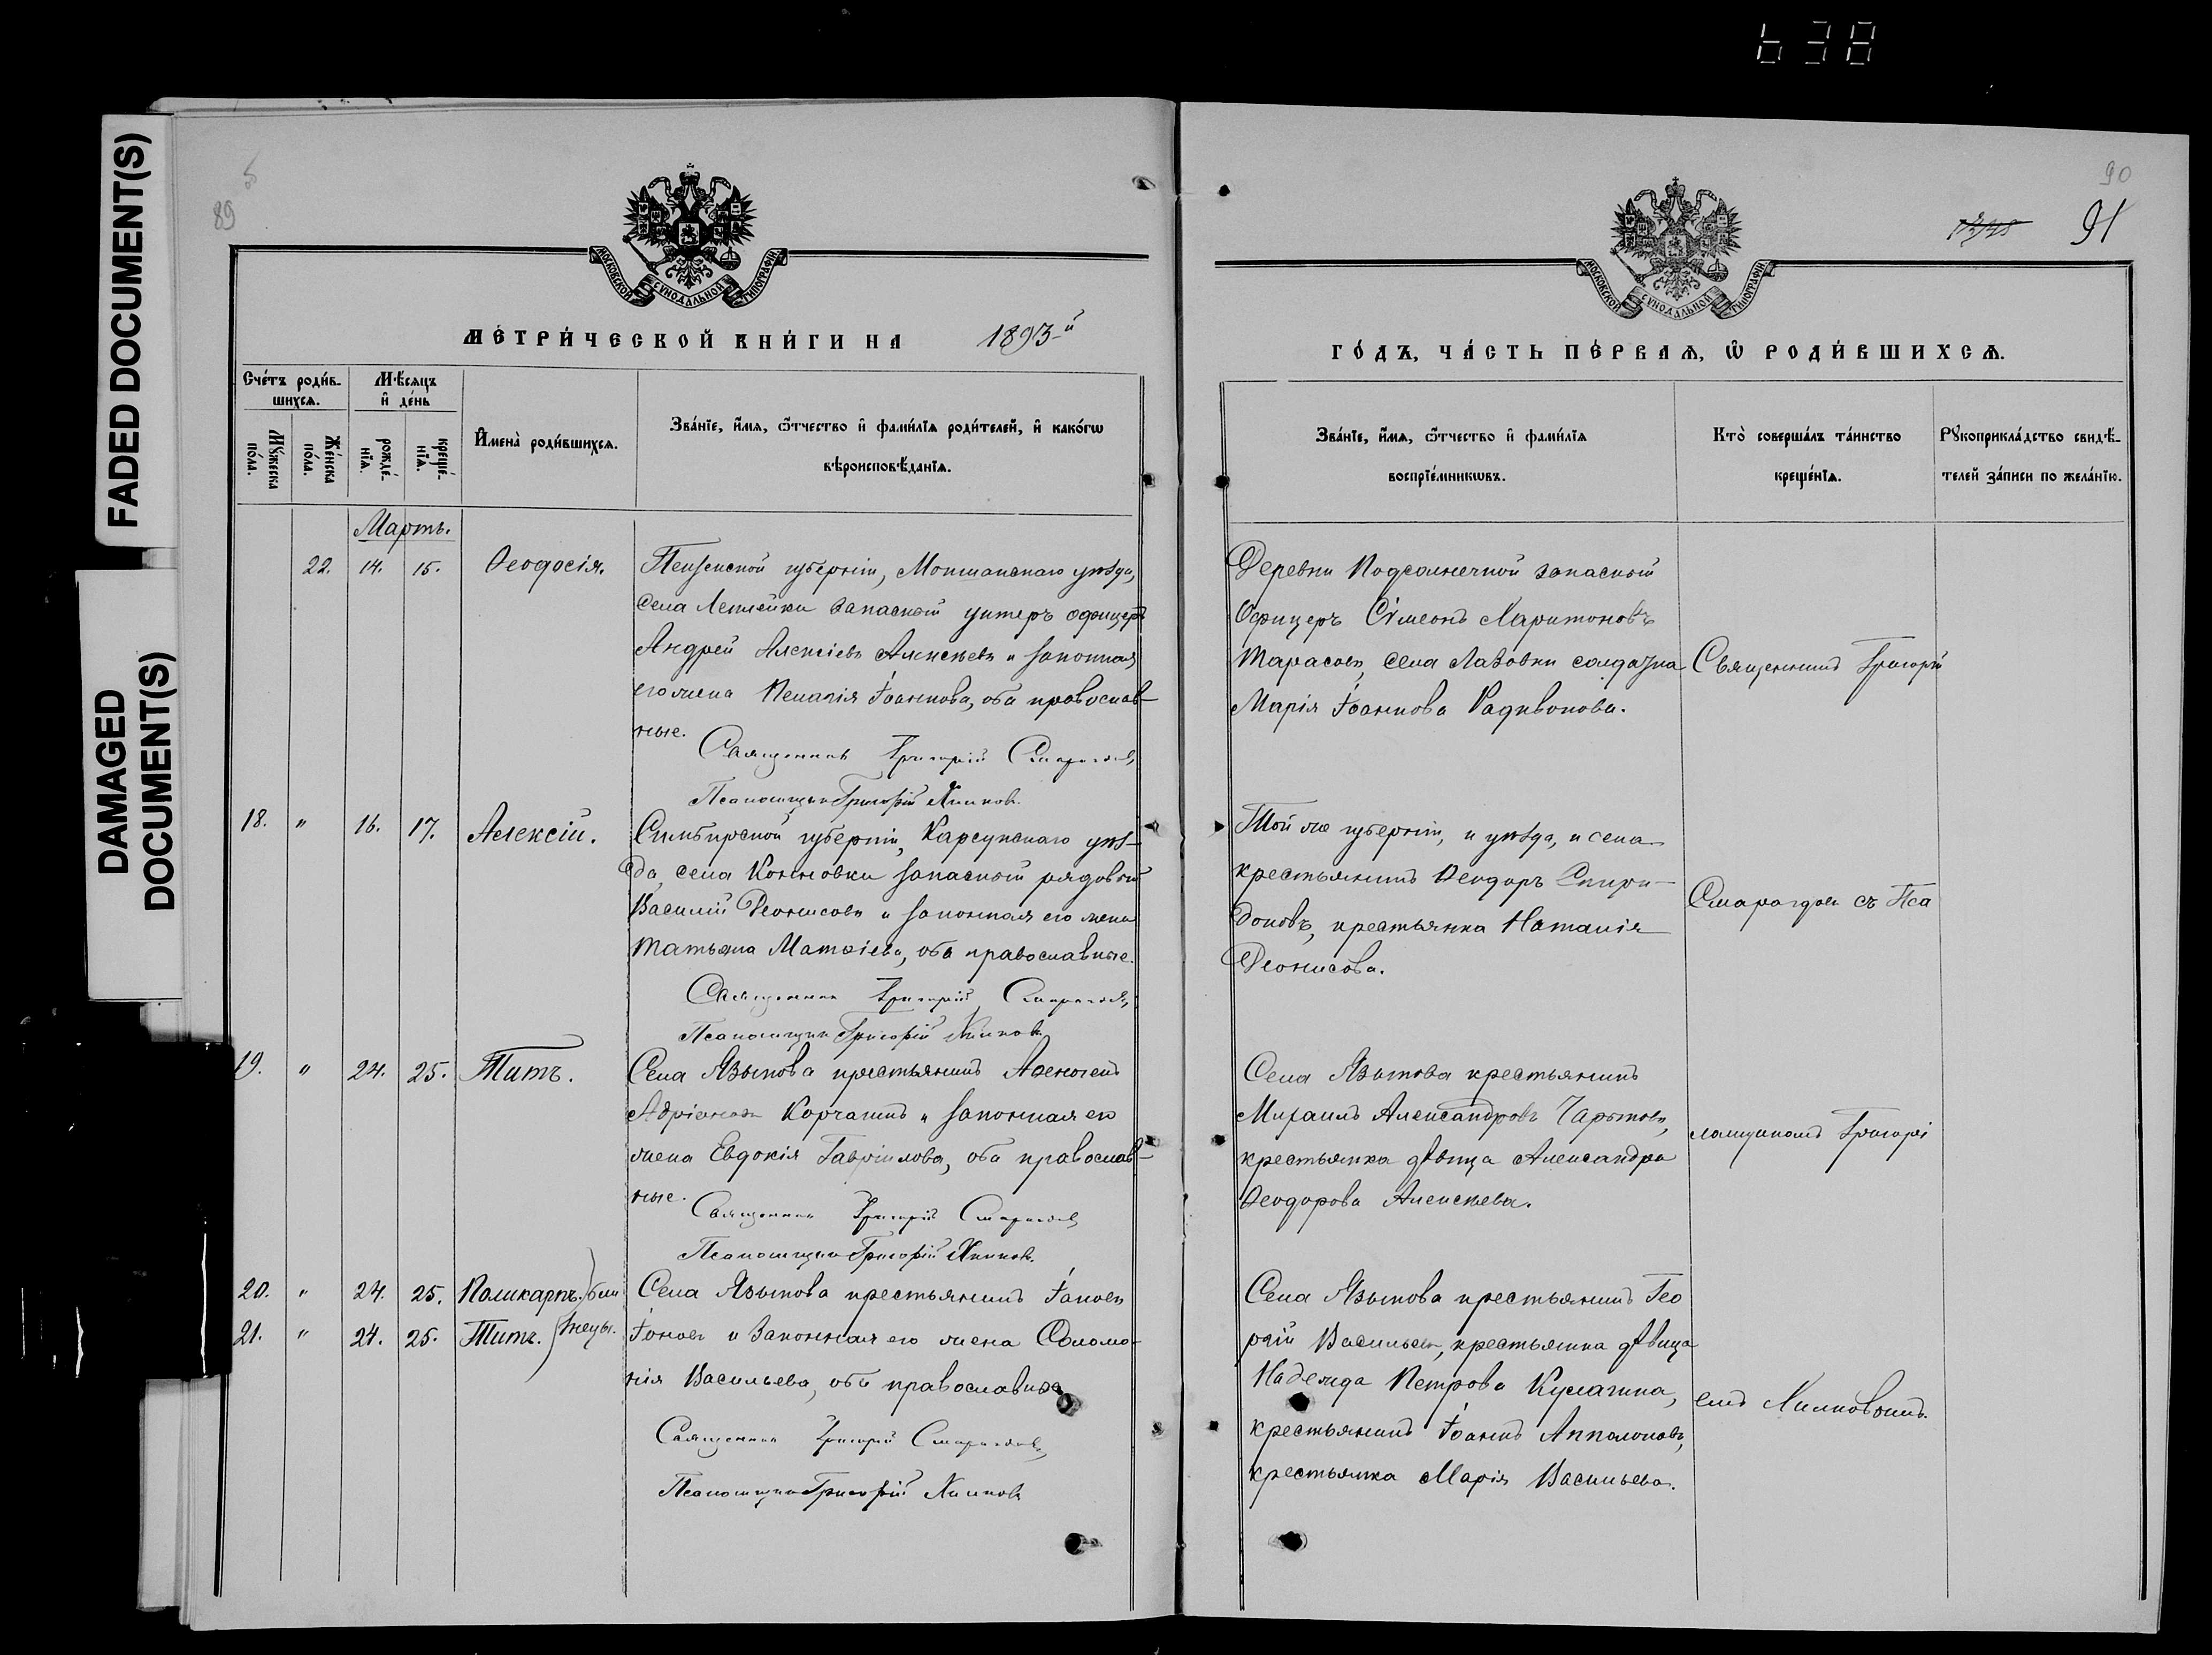 638
FADED DOCUMENT(S)
DAMAGED
DOCUMENT(S)
89
МОСКОВСКОЙ СѴНОДАЛЬНОЙ ТИПОГРАФІИ
МЕТРИ́ЧЕСКОЙ КНИ́ГИ НА 1893-й
Сче́тъ роди́в-
шихсѧ.
Мѣ́сѧцъ
и҆ де́нь
Мꙋ́жеска
по́ла.
Же́нска
по́ла.
рожде́-
нїѧ.
креще́-
нїѧ.
И҆мена̀ роди́вшихсѧ.
Зва́нїе, и҆́мѧ, ѻ҆́тчество и҆ фами́лїѧ роди́телей, и҆ како́гѡ
вѣроисповѣ́данїѧ.
Мартъ.
22. 14. 15. Ѳеодосія.
Пензенской губерніи, Мокшанскаго уѣзда,
села запасной унтеръ офицеръ
Андрей Алексіевъ Алексѣевъ и законная
его жена Пелагія Іоаннова, оба православ-
ные.
Священникъ Григорій Смарагдовъ
Псаломщикъ Григорій Хилковъ.
18. " 16. 17. Алексій.
Симбирской губерніи, Карсунскаго уѣз-
да, села запасной рядовой
Василій Діонисовъ и законная его жена
Татьяна Матѳіева, оба православные.
Священникъ Григорій Смарагдовъ,
Псаломщикъ Григорій Хилковъ
19. " 24. 25. Титъ.
Села Языкова крестьянинъ Аѳиногенъ
Адріановъ Корчагинъ и законная его
жена Евдокія Гавріилова, оба православ-
ные.
Священникъ Григорій Смарагдовъ
Псаломщикъ Григорій Хилковъ.
20. " 24. 25. Поликарпъ. бли
21. " 24. 25. Титъ. знецы.
Села Языкова крестьянинъ
Іоновъ и законная его жена Соломо-
нія Васильева, оба православные
Священникъ Григорій Смарагдовъ,
Псаломщикъ Григорій Хилковъ
90
91
МОСКОВСКОЙ СѴНОДАЛЬНОЙ ТИПОГРАФІИ
ГО́ДЪ, ЧА́СТЬ ПЕ́РВАѦ, Ѡ҆ РОДИ́ВШИХСѦ.
Зва́нїе, и҆́мѧ, ѻ҆́тчество и҆ фами́лїѧ
воспрїе́мникѡвъ.
Кто̀ соверша́лъ та́инство
креще́нїѧ.
Рꙋкоприкла́дство свидѣ́-
телей за́писи по жела́нїю.
Деревни Подсолнечной запасной
Офицеръ Сѵмеонъ Харитоновъ
Тарасовъ, села Лазовки солдатка
Марія Іоаннова Радивонова.
Той же губерніи, и уѣзда, и села
крестьянинъ Ѳеодоръ Спири-
доновъ, крестьянка Наталія
Діонисова.
Села Языкова крестьянинъ
Михаилъ Александровъ
крестьянка дѣвица Александра
Ѳеодорова Алексѣева.
Села Языкова крестьянинъ Гео
ргій Васильевъ, крестьянка дѣвица
Надежда Петрова Кулагина,
крестьянинъ Іоаннъ Апполоновъ,
крестьянка Марія Васильева.
Священникъ Григорій
Смарагдовъ съ Пса
ломщикомъ Григорі
емъ Хилковымъ.